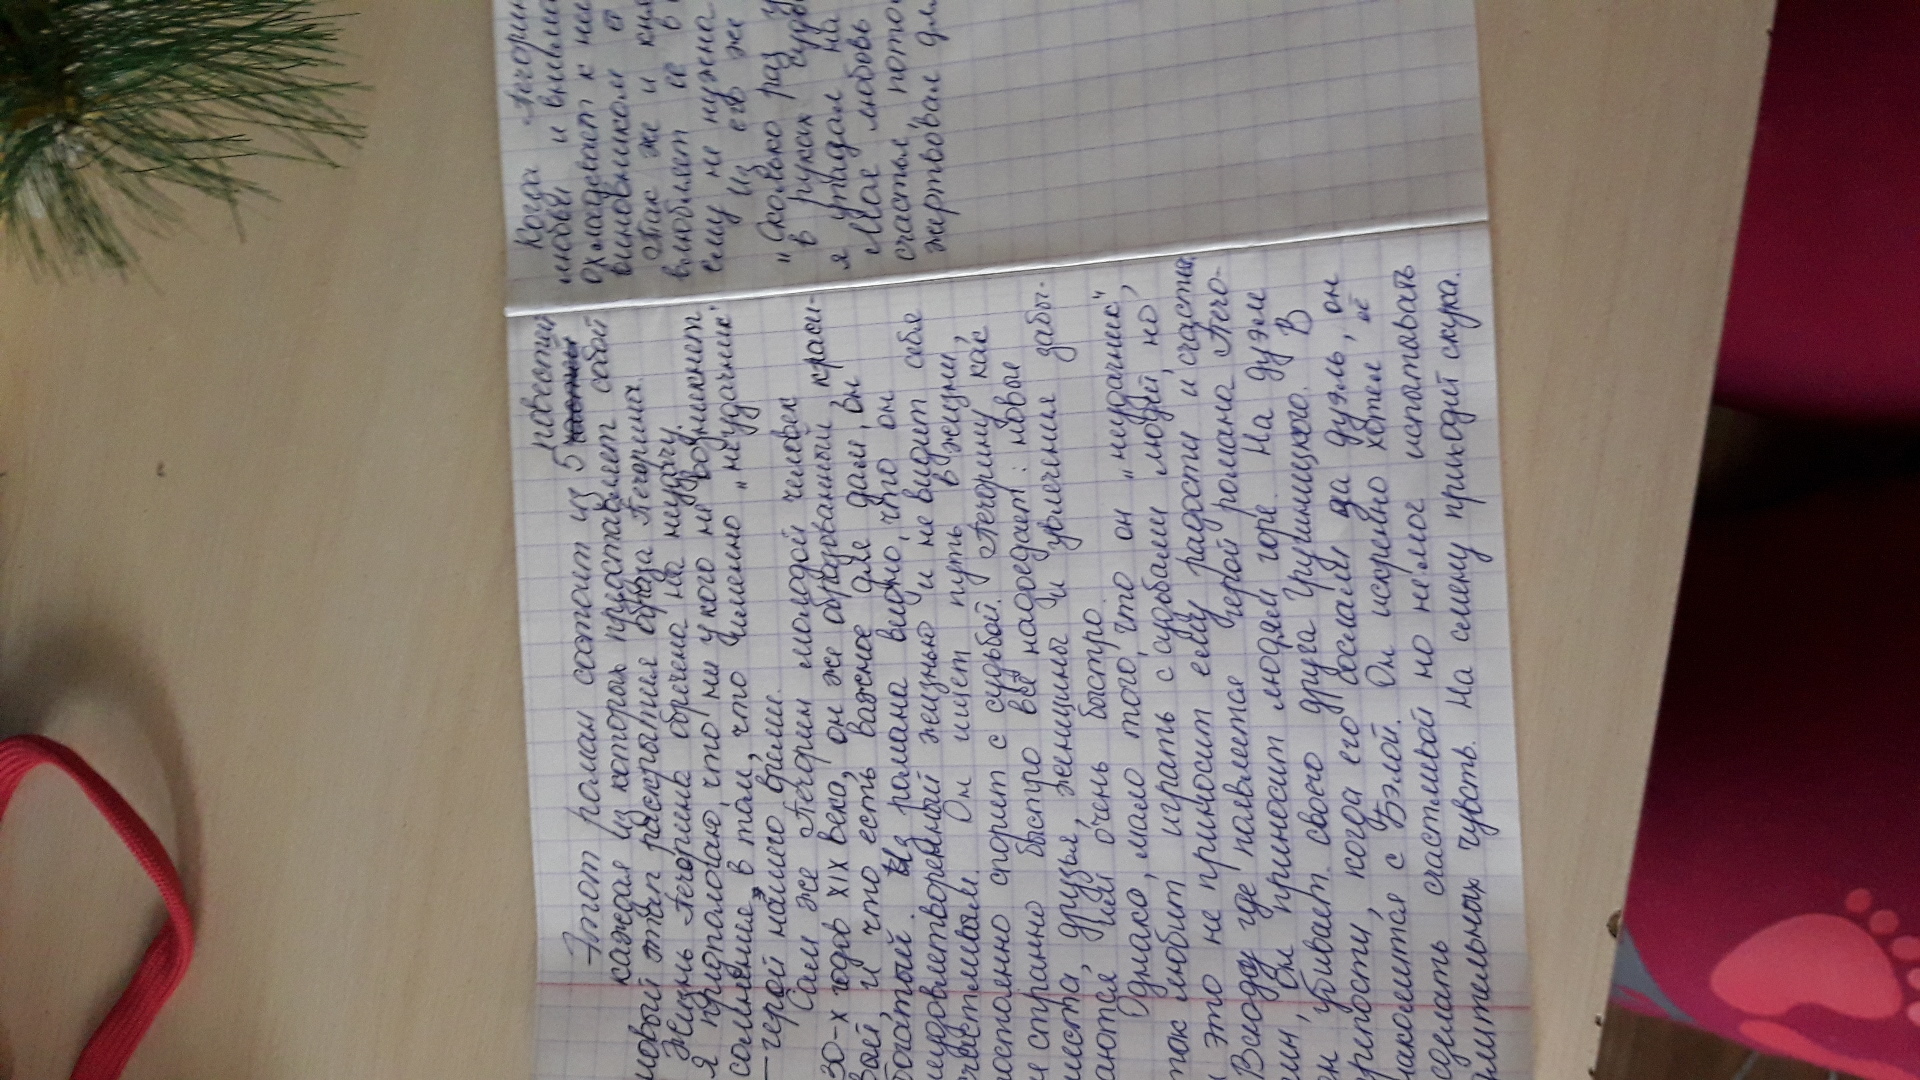 Этот роман состоит из 5 повестей
каждая из которых представляет собой
новый этап раскрытия образа Печорина.
Жизнь Печорина обречена на неудачу.
Я предполагаю, что ни у кого не возникнет
сомнение в том, что именно „неудачник"
– герой нашего времени.
Сам же Печорин молодой человек
30-х годов XIX века, он же образованный, краси-
вый, и что есть важное для дам, он
богатый. Из романа видно, что он себя
неудовлетворенный жизнью и не видит себя
счастливым. Он ищет путь в жизни,
постоянно спорит с судьбой. Печорину как
и странно быстро всё надоедает: новые
места, друзья, женщины и увлечения забы-
ваются им очень быстро.
Однако, мало того, что он „неудачник",
так любит играть с судьбами людей, но,
и это не приносит ему радости и счастья.
Всюду где появляется герой романа Печо-
рин, он приносит людям горе. На дуэли
он убивает своего друга Грушницкого. В
крепости, когда его сослали за дуэль, он
знакомится с Бэлой. Он искренно хотел её
сделать счастливой но не мог испытывать
длительных чувств. На смену приходи скука.
Когда Печорин
любви и внима
охладевает к не
виновником
Так же и кня
влюбляет её в
ему не нужна
Из её же
„Сколько раз у
в руках
я упадал на
Моя любовь
счастья пото
жертвовал дл